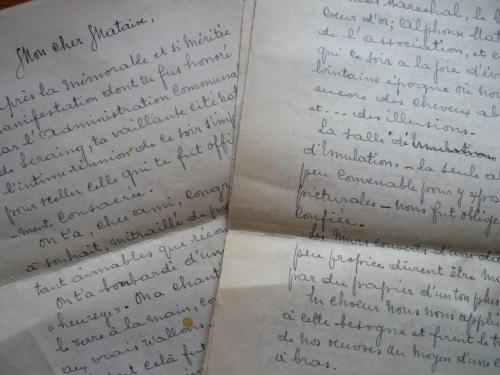 Mon cher Mataive,
après la mémorable et si méritée
manifestation dont tu fus honoré
par l'Administration Communa
de Seraing, ta vaillante cité nat
l'intime réunion de ce soir s'imp
pour sceller celle qui te fut offi
ment consacrée.
On t'a, cher ami, congr
à souhait, mitraillé de
tant aimables que
On t'a bombardé d'un
"heureye". On a chant
le verre à la main, co
aux vrais wallons.
tout celà fut
Maréchal, le
Coeur d'or; Alphonse Mat
de l'association, et c
qui ce soir a la joie d'é
lointaine époque où nou
encore des cheveux a
et... des illusions.
La salle d'Emulation
d'Emulation, - la seule a
peu convenable pour y expo
picturales - nous fut oblige
confiée.
Les murs couverts d'une
peu propice durent être m
par du papier d'un ton plus
En choeur nous nous appli
à cette besogne et firent le t
de nos oeuvres au moyen d'une c
à bras.